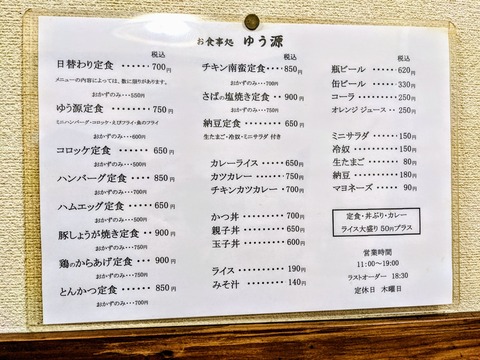 お食事処 ゆう源
税込
日替わり定食 ‥‥‥ 700円
メニューの内容によっては、数に限りがあります。
おかずのみ‥‥550円
ゆう源定食 ‥‥‥‥ 750円
ミニハンバーグ・コロッケ・えびフライ・魚のフライ
おかずのみ‥‥600円
コロッケ定食 ‥‥ 650円
おかずのみ‥‥500円
ハンバーグ定食 ‥‥ 850円
おかずのみ‥‥700円
ハムエッグ定食 ‥‥ 650円
おかずのみ‥‥500円
豚しょうが焼き定食 ‥ 900円
おかずのみ‥‥700円
鶏のからあげ定食 ‥‥ 900円
おかずのみ‥‥750円
とんかつ定食 ‥‥‥ 850円
おかずのみ‥‥700円
税込
チキン南蛮定食‥‥850円
おかずのみ‥‥700円
さばの塩焼き定食 ‥ 900円
おかずのみ‥‥750円
納豆定食 ‥‥‥‥ 650円
生たまご・冷奴・ミニサラダ 付き
カレーライス ‥‥‥650円
カツカレー ‥‥‥‥750円
チキンカツカレー ‥‥700円
かつ丼 ‥‥‥‥‥700円
親子丼 ‥‥‥‥‥650円
玉子丼 ‥‥‥‥‥600円
ライス ‥‥‥‥‥190円
みそ汁 ‥‥‥‥‥140円
税込
瓶ビール ‥‥‥ 620円
缶ビール ‥‥‥ 330円
コーラ ‥‥‥‥ 250円
オレンジ ジュース ‥‥ 250円
ミニサラダ ‥‥‥‥150円
冷奴 ‥‥‥‥‥150円
生たまご ‥‥‥‥ 80円
納豆 ‥‥‥‥‥180円
マヨネーズ ‥‥‥ 90円
定食・丼ぶり・カレー
ライス大盛り 50円プラス
営業時間
11:00～19:00
ラストオーダー 18:30
定休日 木曜日